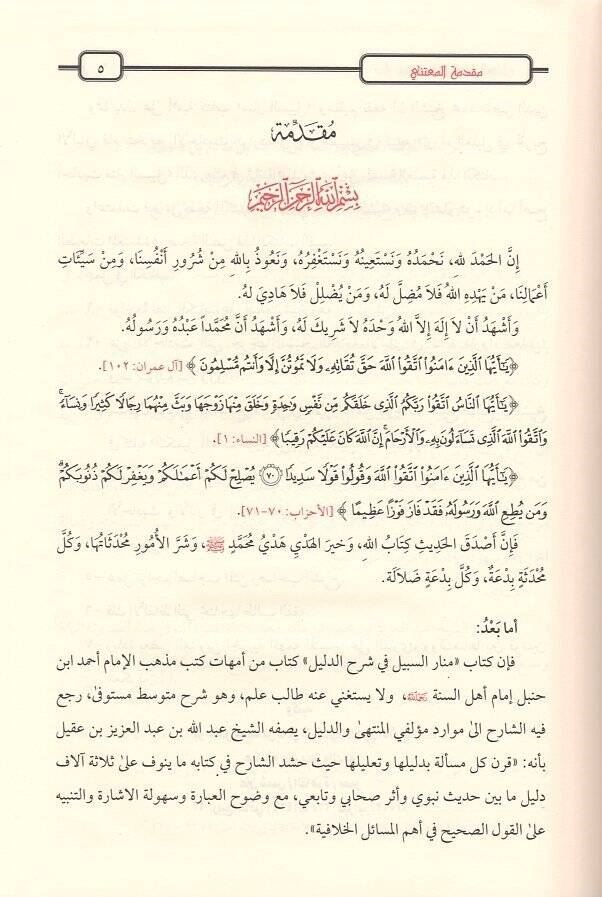 مقدمة المعتني
٥
مُقَدِّمَة
بِسْمِ اللَّهِ الرَّحْمَنِ الرَّحِيمِ
إِنَّ الحَمْدَ للهِ، نَحْمَدُهُ وَنَسْتَعِينُهُ وَنَسْتَغْفِرُهُ، وَنَعُوذُ بِاللهِ مِنْ شُرُورِ أَنْفُسِنَا، وَمِنْ سَيِّئَاتِ
أَعْمَالِنَا، مَنْ يَهْدِهِ اللهُ فَلَا مُضِلَّ لَهُ، وَمَنْ يُضْلِلْ فَلَا هَادِيَ لَهُ.
وَأَشْهَدُ أَنْ لَا إِلَهَ إِلَّا اللهُ وَحْدَهُ لَا شَرِيكَ لَهُ، وَأَشْهَدُ أَنَّ مُحَمَّداً عَبْدُهُ وَرَسُولُهُ.
﴿يَٰٓأَيُّهَا ٱلَّذِينَ ءَامَنُوا۟ ٱتَّقُوا۟ ٱللَّهَ حَقَّ تُقَاتِهِۦ وَلَا تَمُوتُنَّ إِلَّا وَأَنتُم مُّسْلِمُونَ﴾ [آل عمران: ١٠٢].
﴿يَٰٓأَيُّهَا ٱلنَّاسُ ٱتَّقُوا۟ رَبَّكُمُ ٱلَّذِى خَلَقَكُم مِّن نَّفْسٍ وَٰحِدَةٍ وَخَلَقَ مِنْهَا زَوْجَهَا وَبَثَّ مِنْهُمَا رِجَالًا كَثِيرًا وَنِسَآءً ۚ
وَٱتَّقُوا۟ ٱللَّهَ ٱلَّذِى تَسَآءَلُونَ بِهِۦ وَٱلْأَرْحَامَ ۚ إِنَّ ٱللَّهَ كَانَ عَلَيْكُمْ رَقِيبًا﴾ [النساء: ١].
﴿يَٰٓأَيُّهَا ٱلَّذِينَ ءَامَنُوا۟ ٱتَّقُوا۟ ٱللَّهَ وَقُولُوا۟ قَوْلًا سَدِيدًا ٧٠ يُصْلِحْ لَكُمْ أَعْمَٰلَكُمْ وَيَغْفِرْ لَكُمْ ذُنُوبَكُمْ ۗ
وَمَن يُطِعِ ٱللَّهَ وَرَسُولَهُۥ فَقَدْ فَازَ فَوْزًا عَظِيمًا﴾ [الأحزاب: ٧٠-٧١].
فَإِنَّ أَصْدَقَ الحَدِيثِ كِتَابُ اللهِ، وَخَيرَ الهَدْيِ هَدْيُ مُحَمَّدٍ ﷺ، وَشَرَّ الأُمُورِ مُحْدَثَاتُهَا، وَكُلَّ
مُحْدَثَةٍ بِدْعَةٌ، وَكُلَّ بِدْعَةٍ ضَلَالَة.
أما بَعْدُ:
فإن كتاب «منار السبيل في شرح الدليل» كتاب من أمهات كتب مذهب الإمام أحمد ابن
حنبل إمام أهل السنة رحمه الله، ولا يستغني عنه طالب علم، وهو شرح متوسط مستوفىٰ، رجع
فيه الشارح الىٰ موارد مؤلفي المنتهىٰ والدليل، يصفه الشيخ عبد الله بن عبد العزيز بن عقيل
بأنه: «قرن كل مسألة بدليلها وتعليلها حيث حشد الشارح في كتابه ما ينوف علىٰ ثلاثة آلاف
دليل ما بين حديث نبوي وأثر صحابي وتابعي، مع وضوح العبارة وسهولة الاشارة والتنبيه
علىٰ القول الصحيح في أهم المسائل الخلافية».